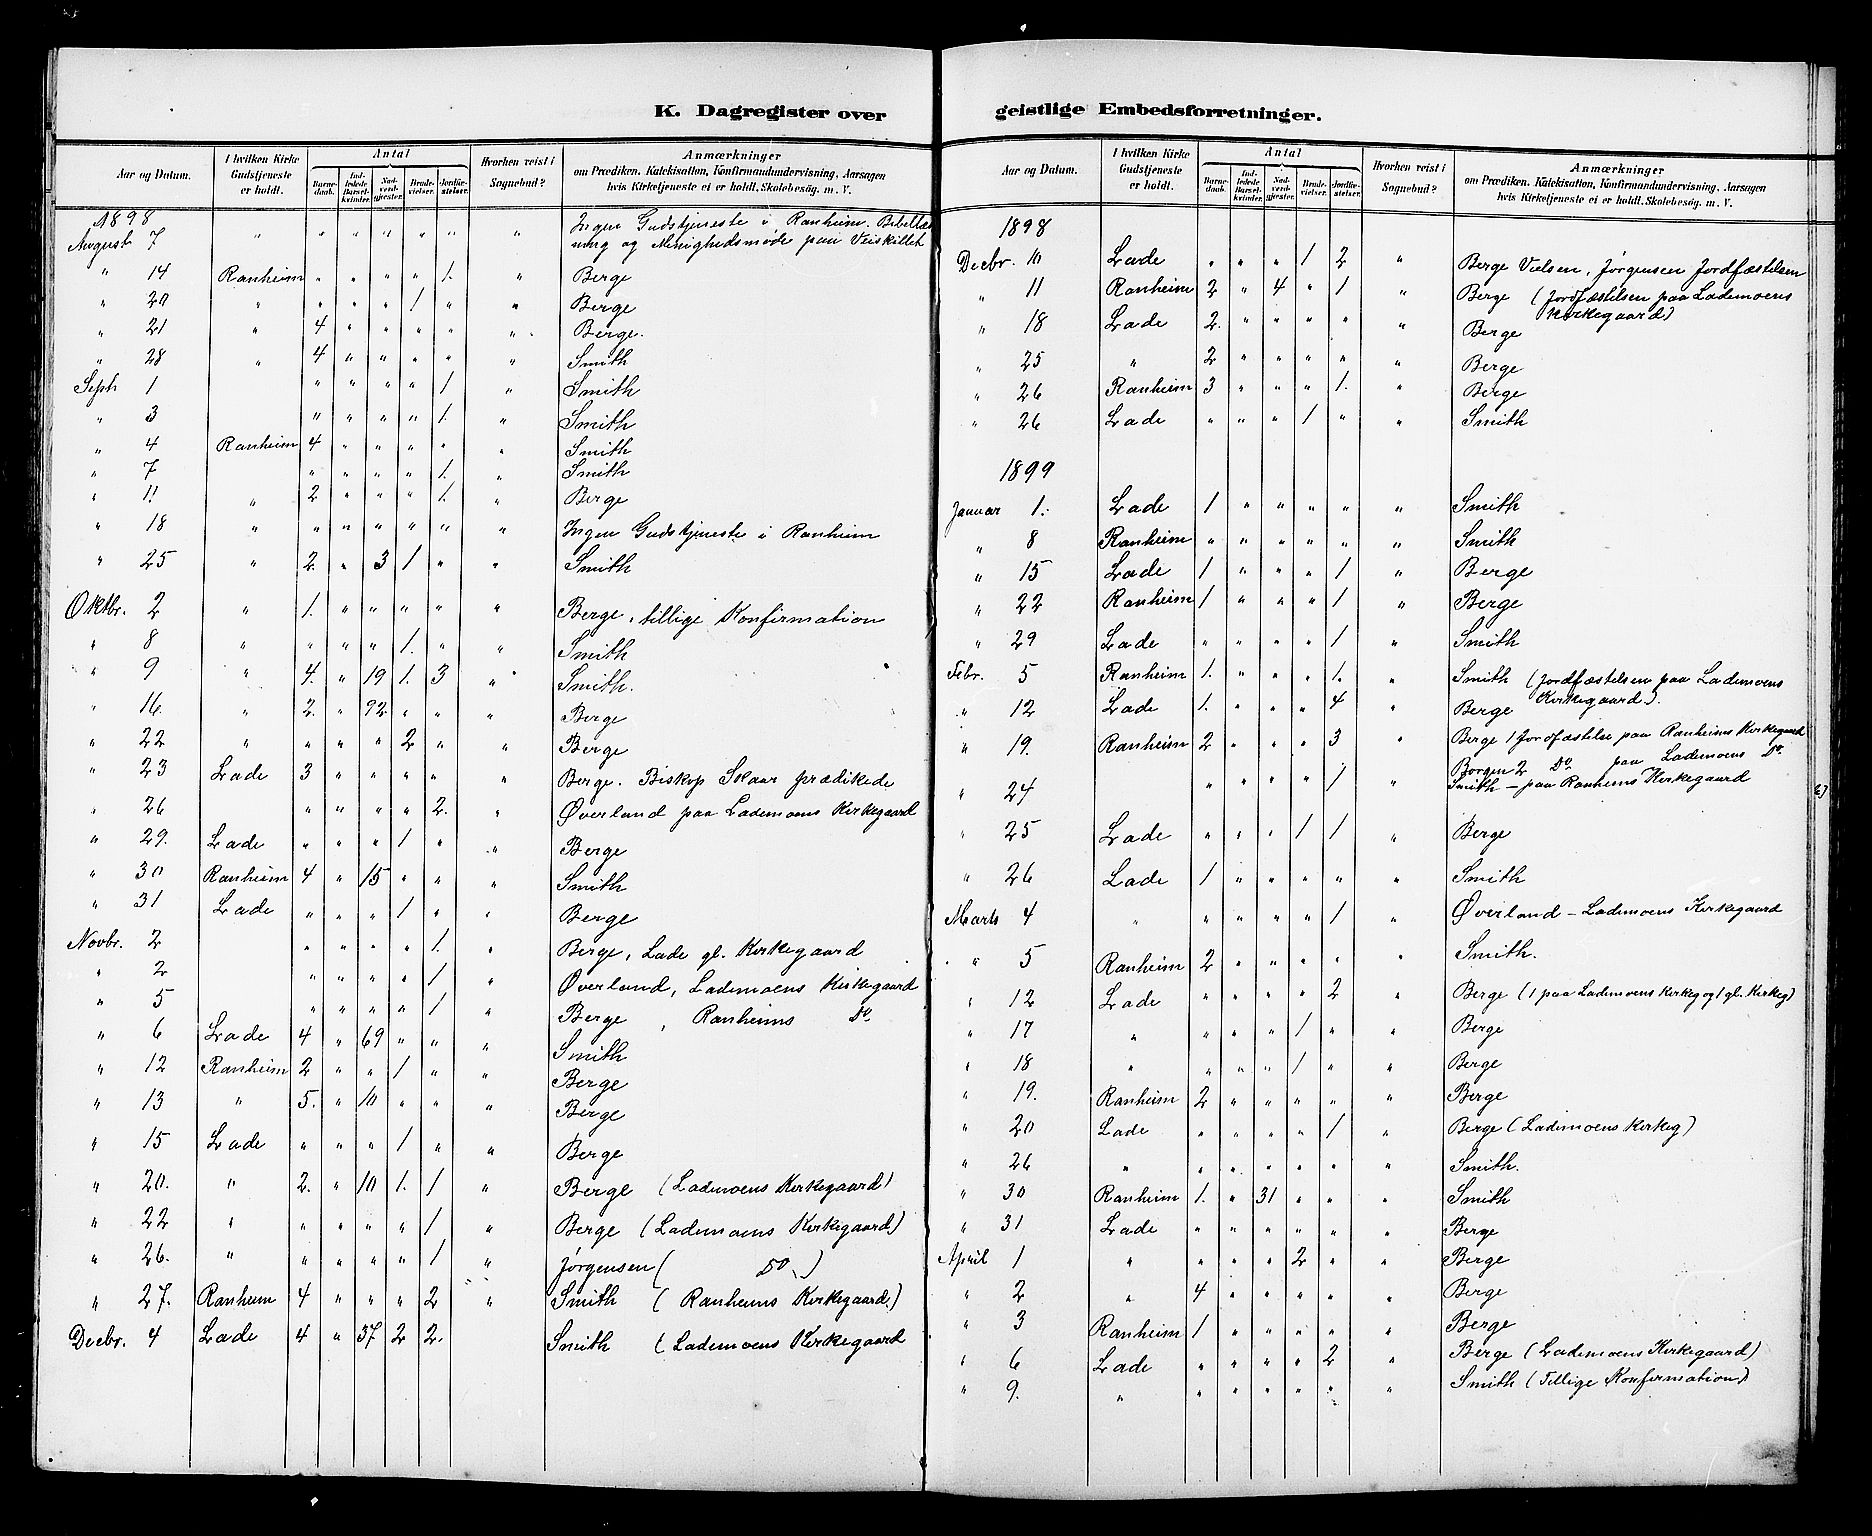 K. Dagregister over
Aar og Datum. I hvilken Kirke Gudstjeneste er holdt. Antal Barnedaab. Indledede Barselkvinder. Nadverdgjester. Brudevielser. Jordfæstelser. Hvorhen reist i Sognebud? Anmærkninger om Prædiken, Katekisation, Konfirmandundervisning, Aarsagen hvis Kirketjeneste ei er holdt, Skolebesøg, m. V.
1898
August 7 " " " " " " " Ingen Gudstjeneste i Ranheim. Bibellæs
ning og Menighedsmøde paa Veiskillet
" 14 Ranheim " " " " 1. " Berge
" 20 " " " " 1 " " Berge
" 21 " 4 " " " " " Berge.
" 28 " 4 " " " " " Smith
Septr 1 " " " " 1 " Smith
" 3 " " " " 1. " Smith
" 4 Ranheim 4 " " " " " Smith
" 7 " " " " 1. " Smith
" 11 " 2 " " " 1. " Berge
" 18 " " " " " " " Ingen Gudstjeneste i Ranheim
" 25 " 2. " 3 1 " " Smith
Oktbr. 2 " 1. " " " " " Berge, tillige Konfirmation
" 8 " " " " 1. " " Smith
" 9 " 4. " 19 1. 3 " Smith.
" 16. " 2. " 92. " " " Berge
" 22 " " " " 2 " " Berge
" 23 Lade 3 " " " " " Berge. Biskop Skaar prædikede
" 26 " " " " 2. " Øverland paa Lademoens Kirkegaard
" 29. Lade " " " 1 " " Berge
" 30 Ranheim 4 " 15 " " " Smith
" 31 Lade " " " 1 " " Berge
Novbr. 2 " " " " 1. " Berge, Lade gl. Kirkegaard
" 2 " " " " 1 " Øverland, Lademoens Kirkegaard
" 5 " " " " 1 " Berge, Ranheims Do
" 6 Lade 4 " 69 " " " Smith
" 12 Ranheim 2 " " 1 " " Berge
" 13 " 5. " 10 " " " Berge
" 15 Lade " " " 1 " " Berge
" 20. " 2. " 10 1. 1 " Berge (Lademoens Kirkegaard)
" 22 " " " " " 1 " Berge (Lademoens Kirkegaard)
" 26. " " " " " 1 " Jørgensen ( Do )
" 27. Ranheim 4 " " " 2 " Smith (Ranheims Kirkegaard.)
Decbr. 4 Lade 4 " 37 2 2. Smith (Lademoens Kirkegaard
geistlige Embedsforretninger.
Aar og Datum. I hvilken Kirke Gudstjeneste er holdt. Antal Barnedaab. Indledede Barselkvinder. Nadverdgjester. Brudevielser. Jordfæstelser. Hvorhen reist i Sognebud? Anmærkninger om Prædiken, Katekisation, Konfirmandundervisning, Aarsagen hvis Kirketjeneste ei er holdt, Skolebesøg, m. V.
1898
Decbr. 10 Lade " " " 1 2 " Berge Vielsen, Jørgensen Jordfæstelsen
" 11 Ranheim 2 " 4 " 1 " Berge (Jordfæstelsen paa Lademoens
Kirkegaard)
" 18 Lade 2. " " " " " Berge
" 25 " 2 " " " " " Berge
" 26 Ranheim 3 " " " 1. " Berge
" 26 Lade " " " 1 " " Smith
1899
Januar 1. Lade 1 " " " " " Smith
" 8 Ranheim " " " " " " Smith
" 15 Lade 1 " " " 1 " Berge
" 22 Ranheim 1 " " " 1 " Berge
" 29 Lade " " " " 1 " Smith
Febr. 5 Ranheim 1. " " " 1. " Smith (Jordfæstelsen paa Lademoens
Kirkegaard).
" 12 Lade 1. " " " 4 " Berge
" 19. Ranheim 2 " " " 3 " Berge 1 Jordfæstelse paa Ranheims Kirkegaard
Borgen 2 Do paa Lademoens Do
" 24 " " " " 1 " Smith - paa Ranheims Kirkegaard
" 25 Lade " " " 1 1 " Berge
" 26 Lade 1 " " " " " Smith
Marts 4 " " " " " 1 " Øverland - Lademoens Kirkegaard
" 5 Ranheim 2 " " " " " Smith.
" 12 Lade " " " " 2 " Berge (1 paa Lademoens Kirkeg og 1 gl. Kirkeg)
" 17 " " " " 1 " " Berge
" 18 " " " " 1 " " Berge
" 19. Ranheim 2 " " " " " Berge
" 20 Lade " " " " 1 " Berge (Lademoens Kirkeg)
" 26 " " " " " " " Smith.
" 30 Ranheim 1. " 31 " " " Smith
" 31 Lade " " " " " " Berge
April 1 " " " " 2 " " Berge
" 2 " 4 " " " " " Berge
" 3 Ranheim 1 " " " " " Berge
" 6 Lade " " " " 2 " Berge (Lademoens Kirkegaard)
" 9. " " " " " " " Smith (Tillige Konfirmation)